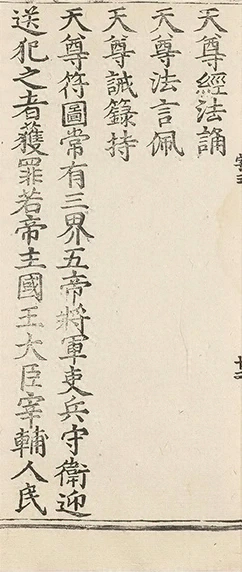 天尊經法誦
天尊法言佩
天尊誡籙持
天尊符圖常有三界五帝將軍吏兵守衛迎
送犯之者獲罪若帝主國王大臣宰輔人民